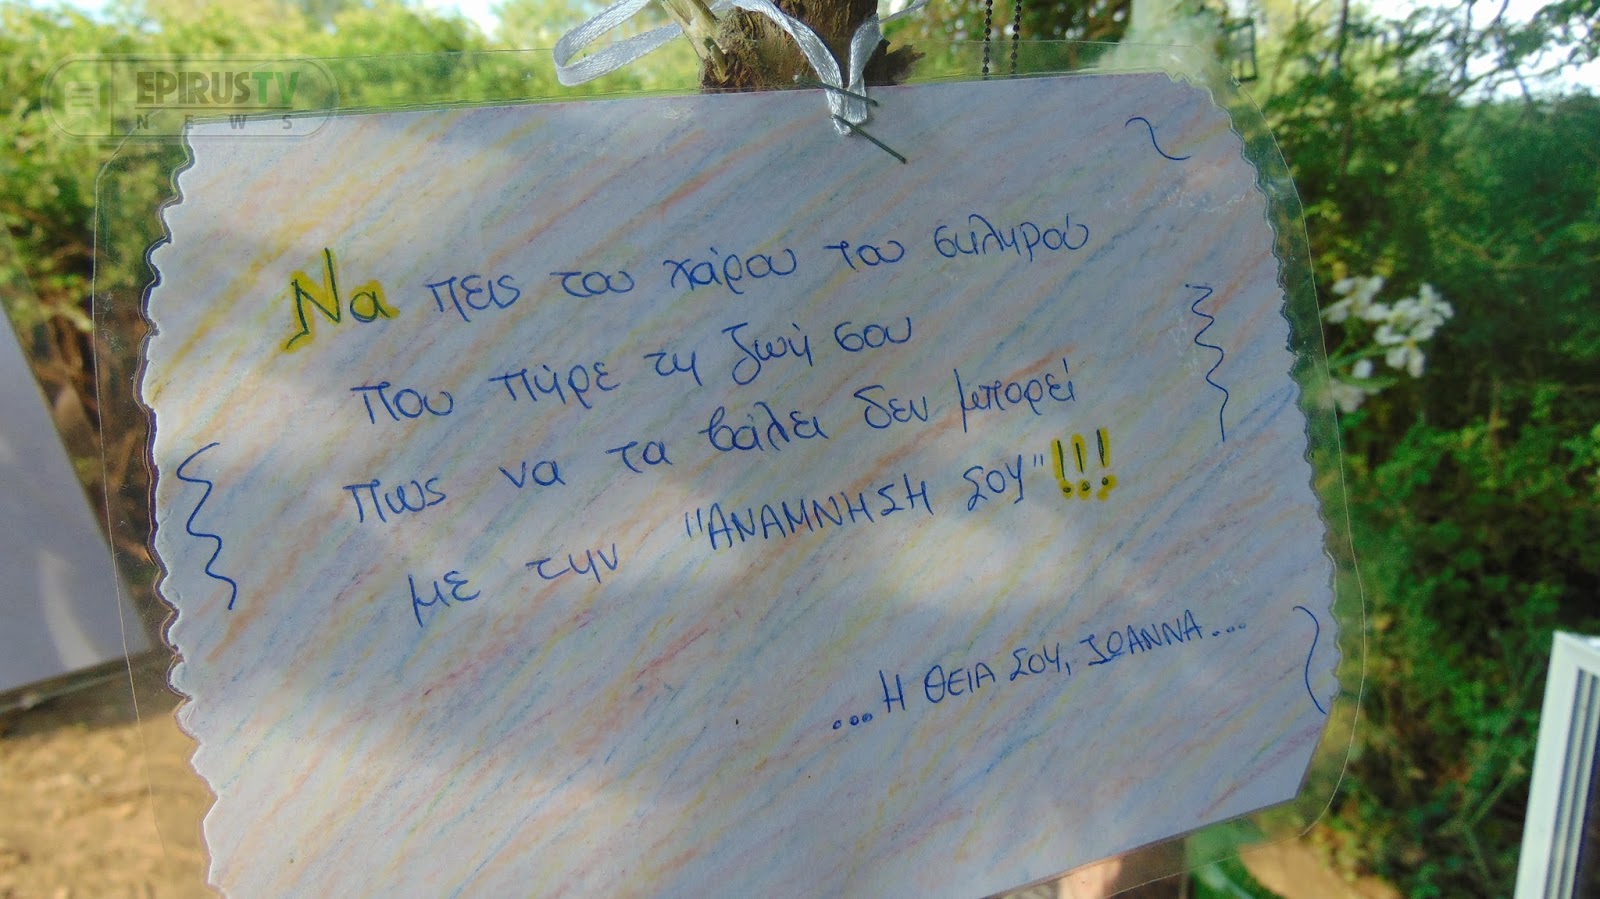 EPIRUSTV
NEWS
Να πεις του χάρου του σκληρού
που πήρε τη ζωή σου
πως να τα βάλει δεν μπορεί
με την "ΑΝΑΜΝΗΣΗ ΣΟΥ"!!!
...Η ΘΕΙΑ ΣΟΥ, ΙΩΑΝΝΑ...